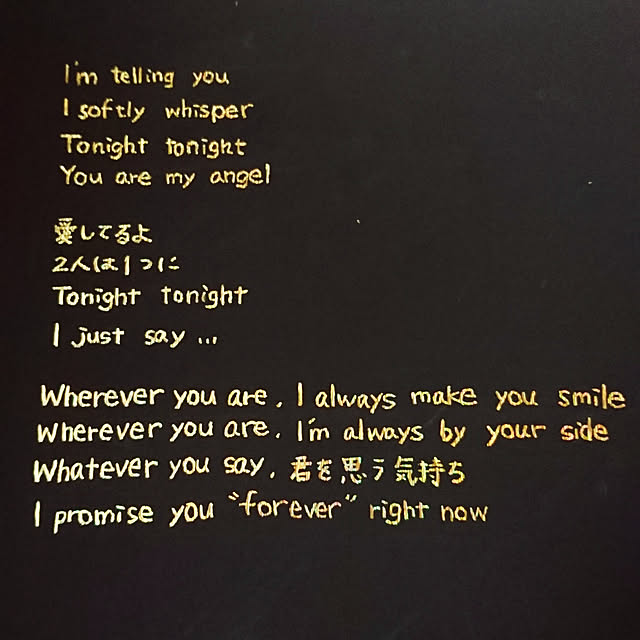 I'm telling you
I softly whisper
Tonight tonight
You are my angel
愛してるよ
2人は1つに
Tonight tonight
I just say ...
Wherever you are, I always make you smile
Wherever you are, I'm always by your side
Whatever you say, 君を思う気持ち
I promise you "forever" right now